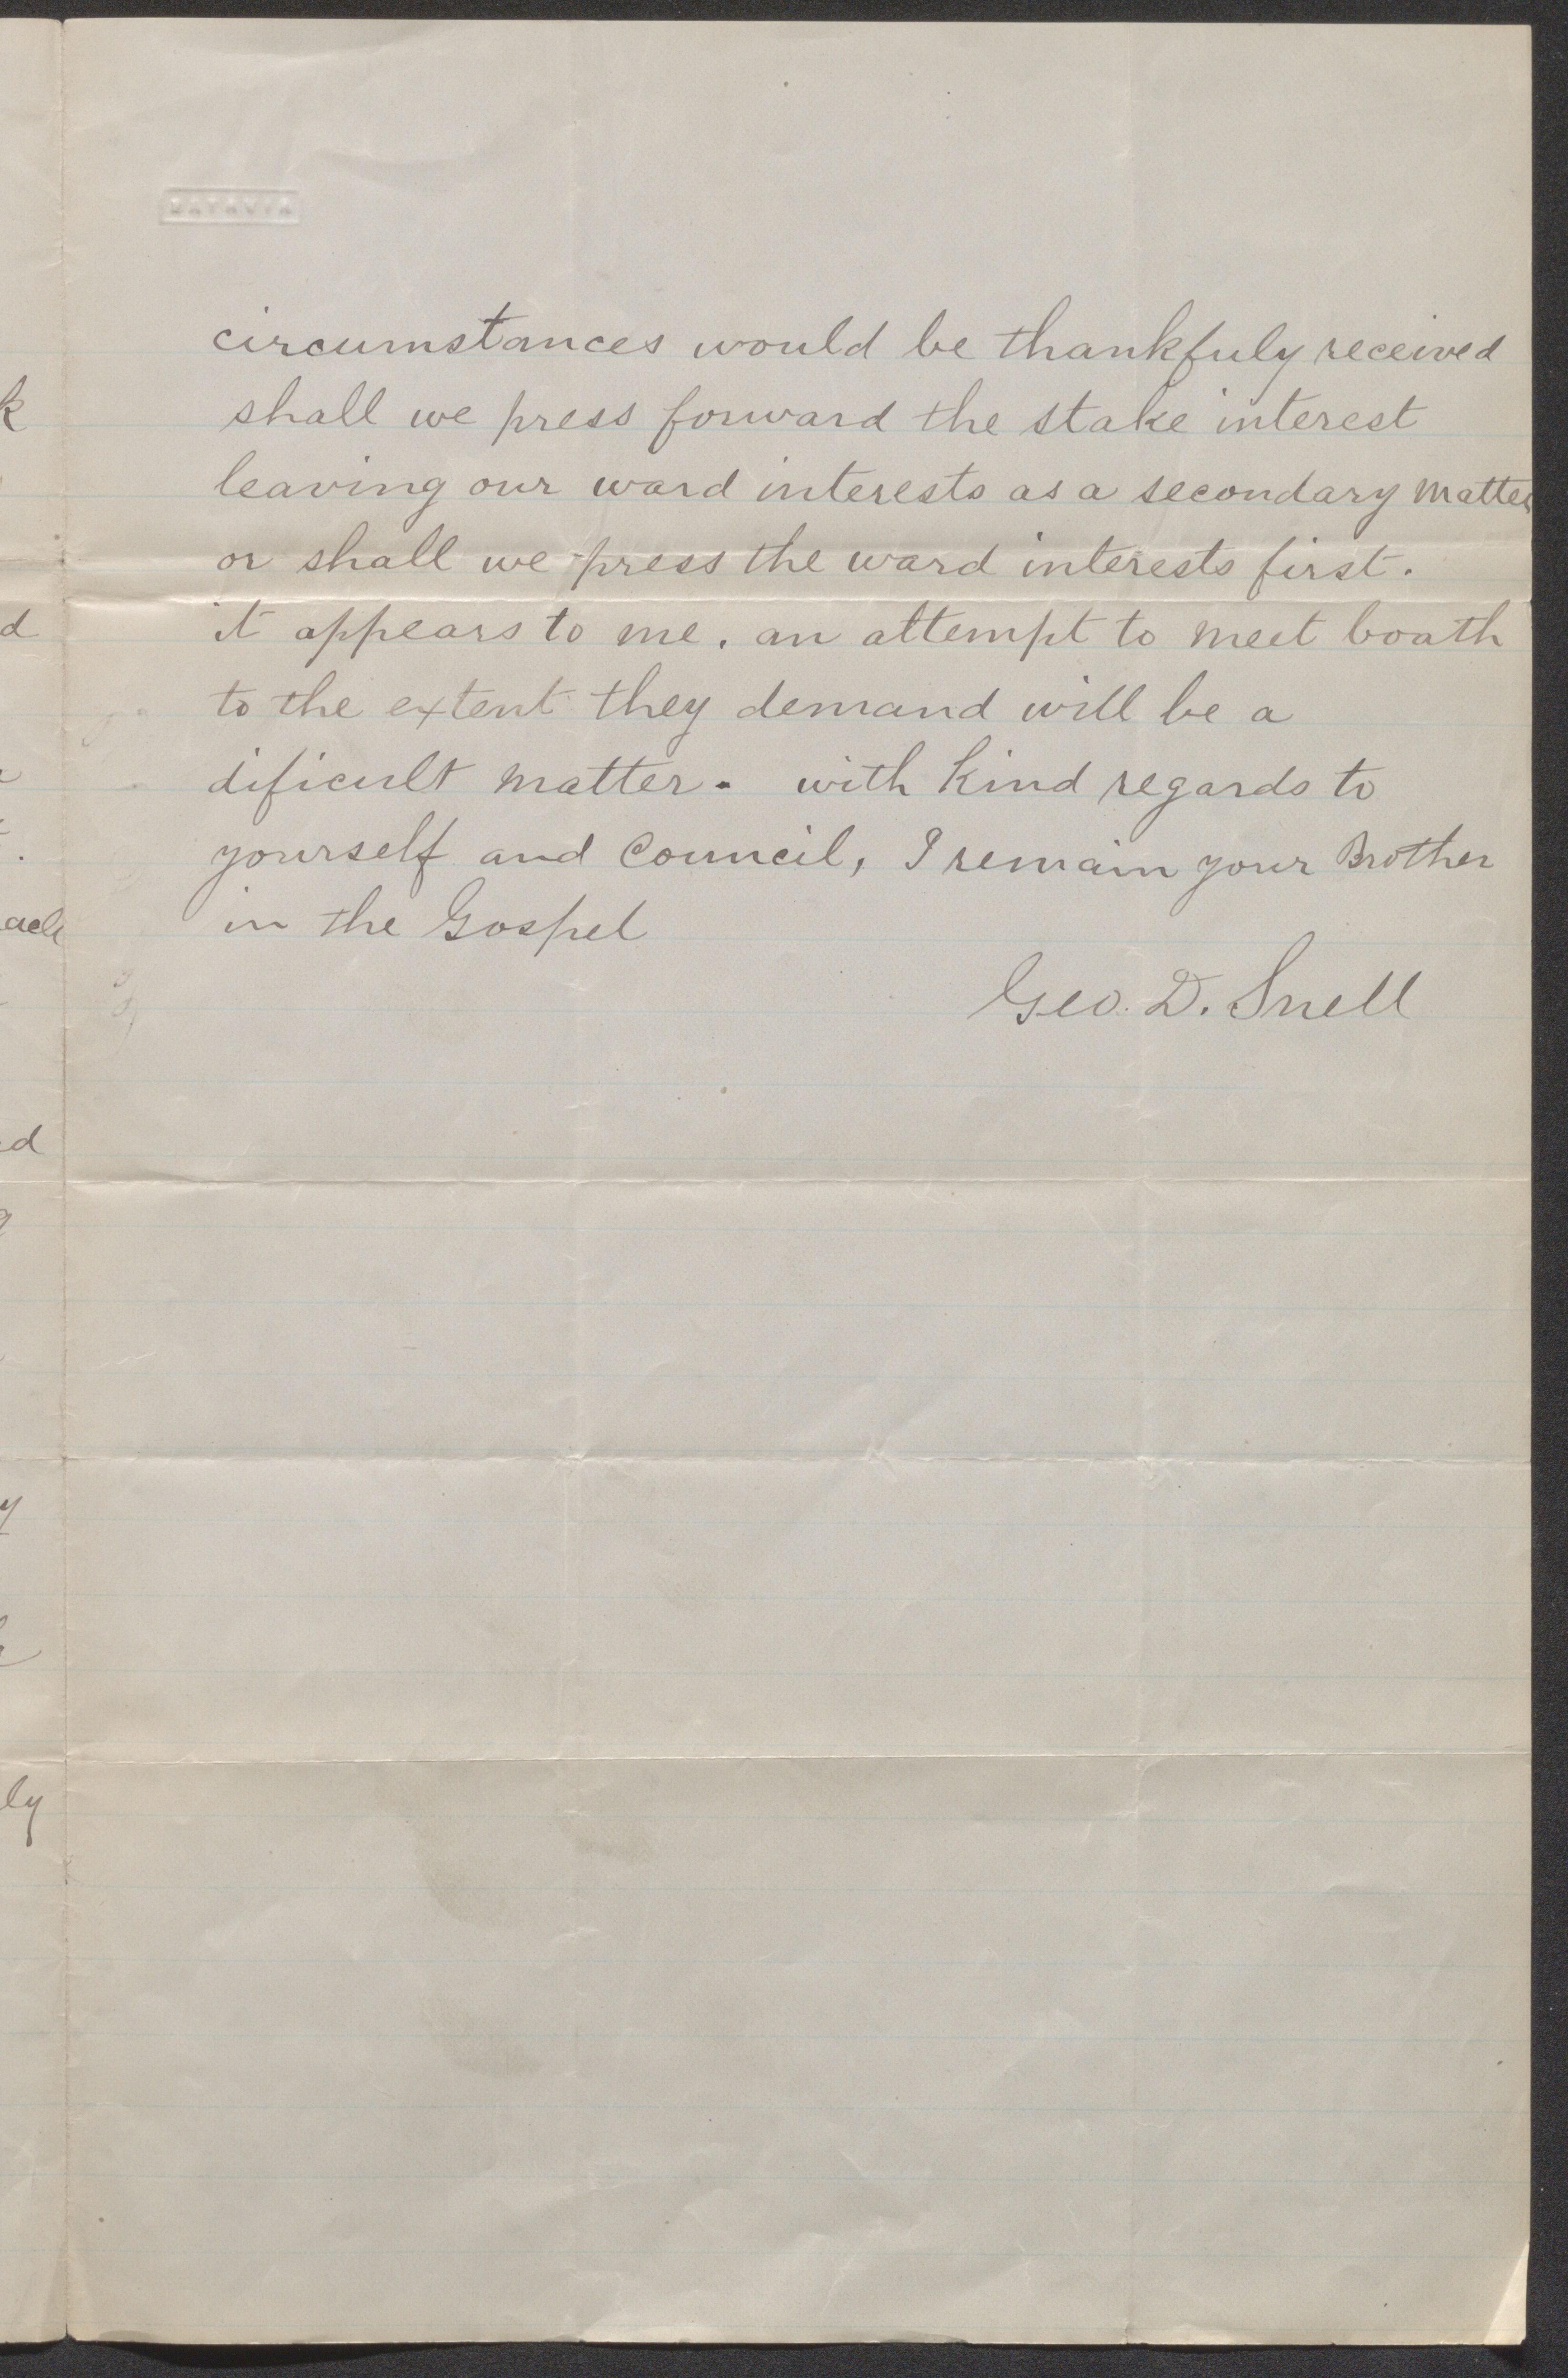 BATAVIA
circumstances would be thankfuly received
shall we press forward the stake interest
leaving our ward interests as a secondary matter
or shall we press the ward interests first.
it appears to me. an attempt to meet boath
to the extent they demand will be a
dificult matter. with kind regards to
yourself and Council, I remain your Brother
in the Gospel
Geo. D. Snell